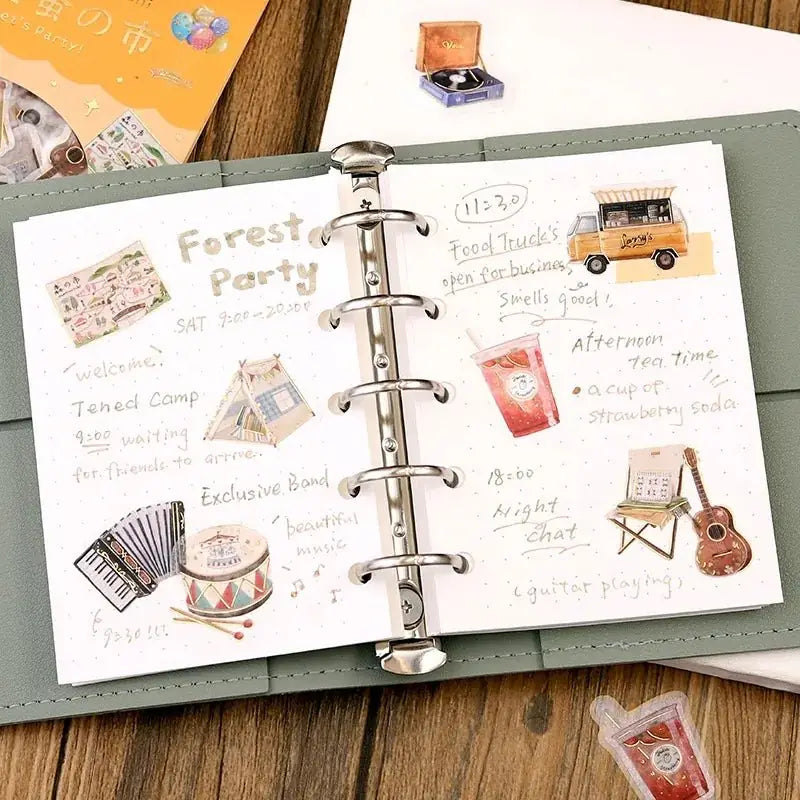 の市
et's Party!
Forest
Party
SAT 9:00-20:00
"welcome"
Tened Camp
9:00 waiting
for friends to arrive.
Exclusive Band
"beautiful
music
9:30 !!!
11:30
Food Truck's
open for business,
Smells good!
Afternoon
tea time
• a cup of
strawberry soda
18:00
Night
chat
(guitar playing)